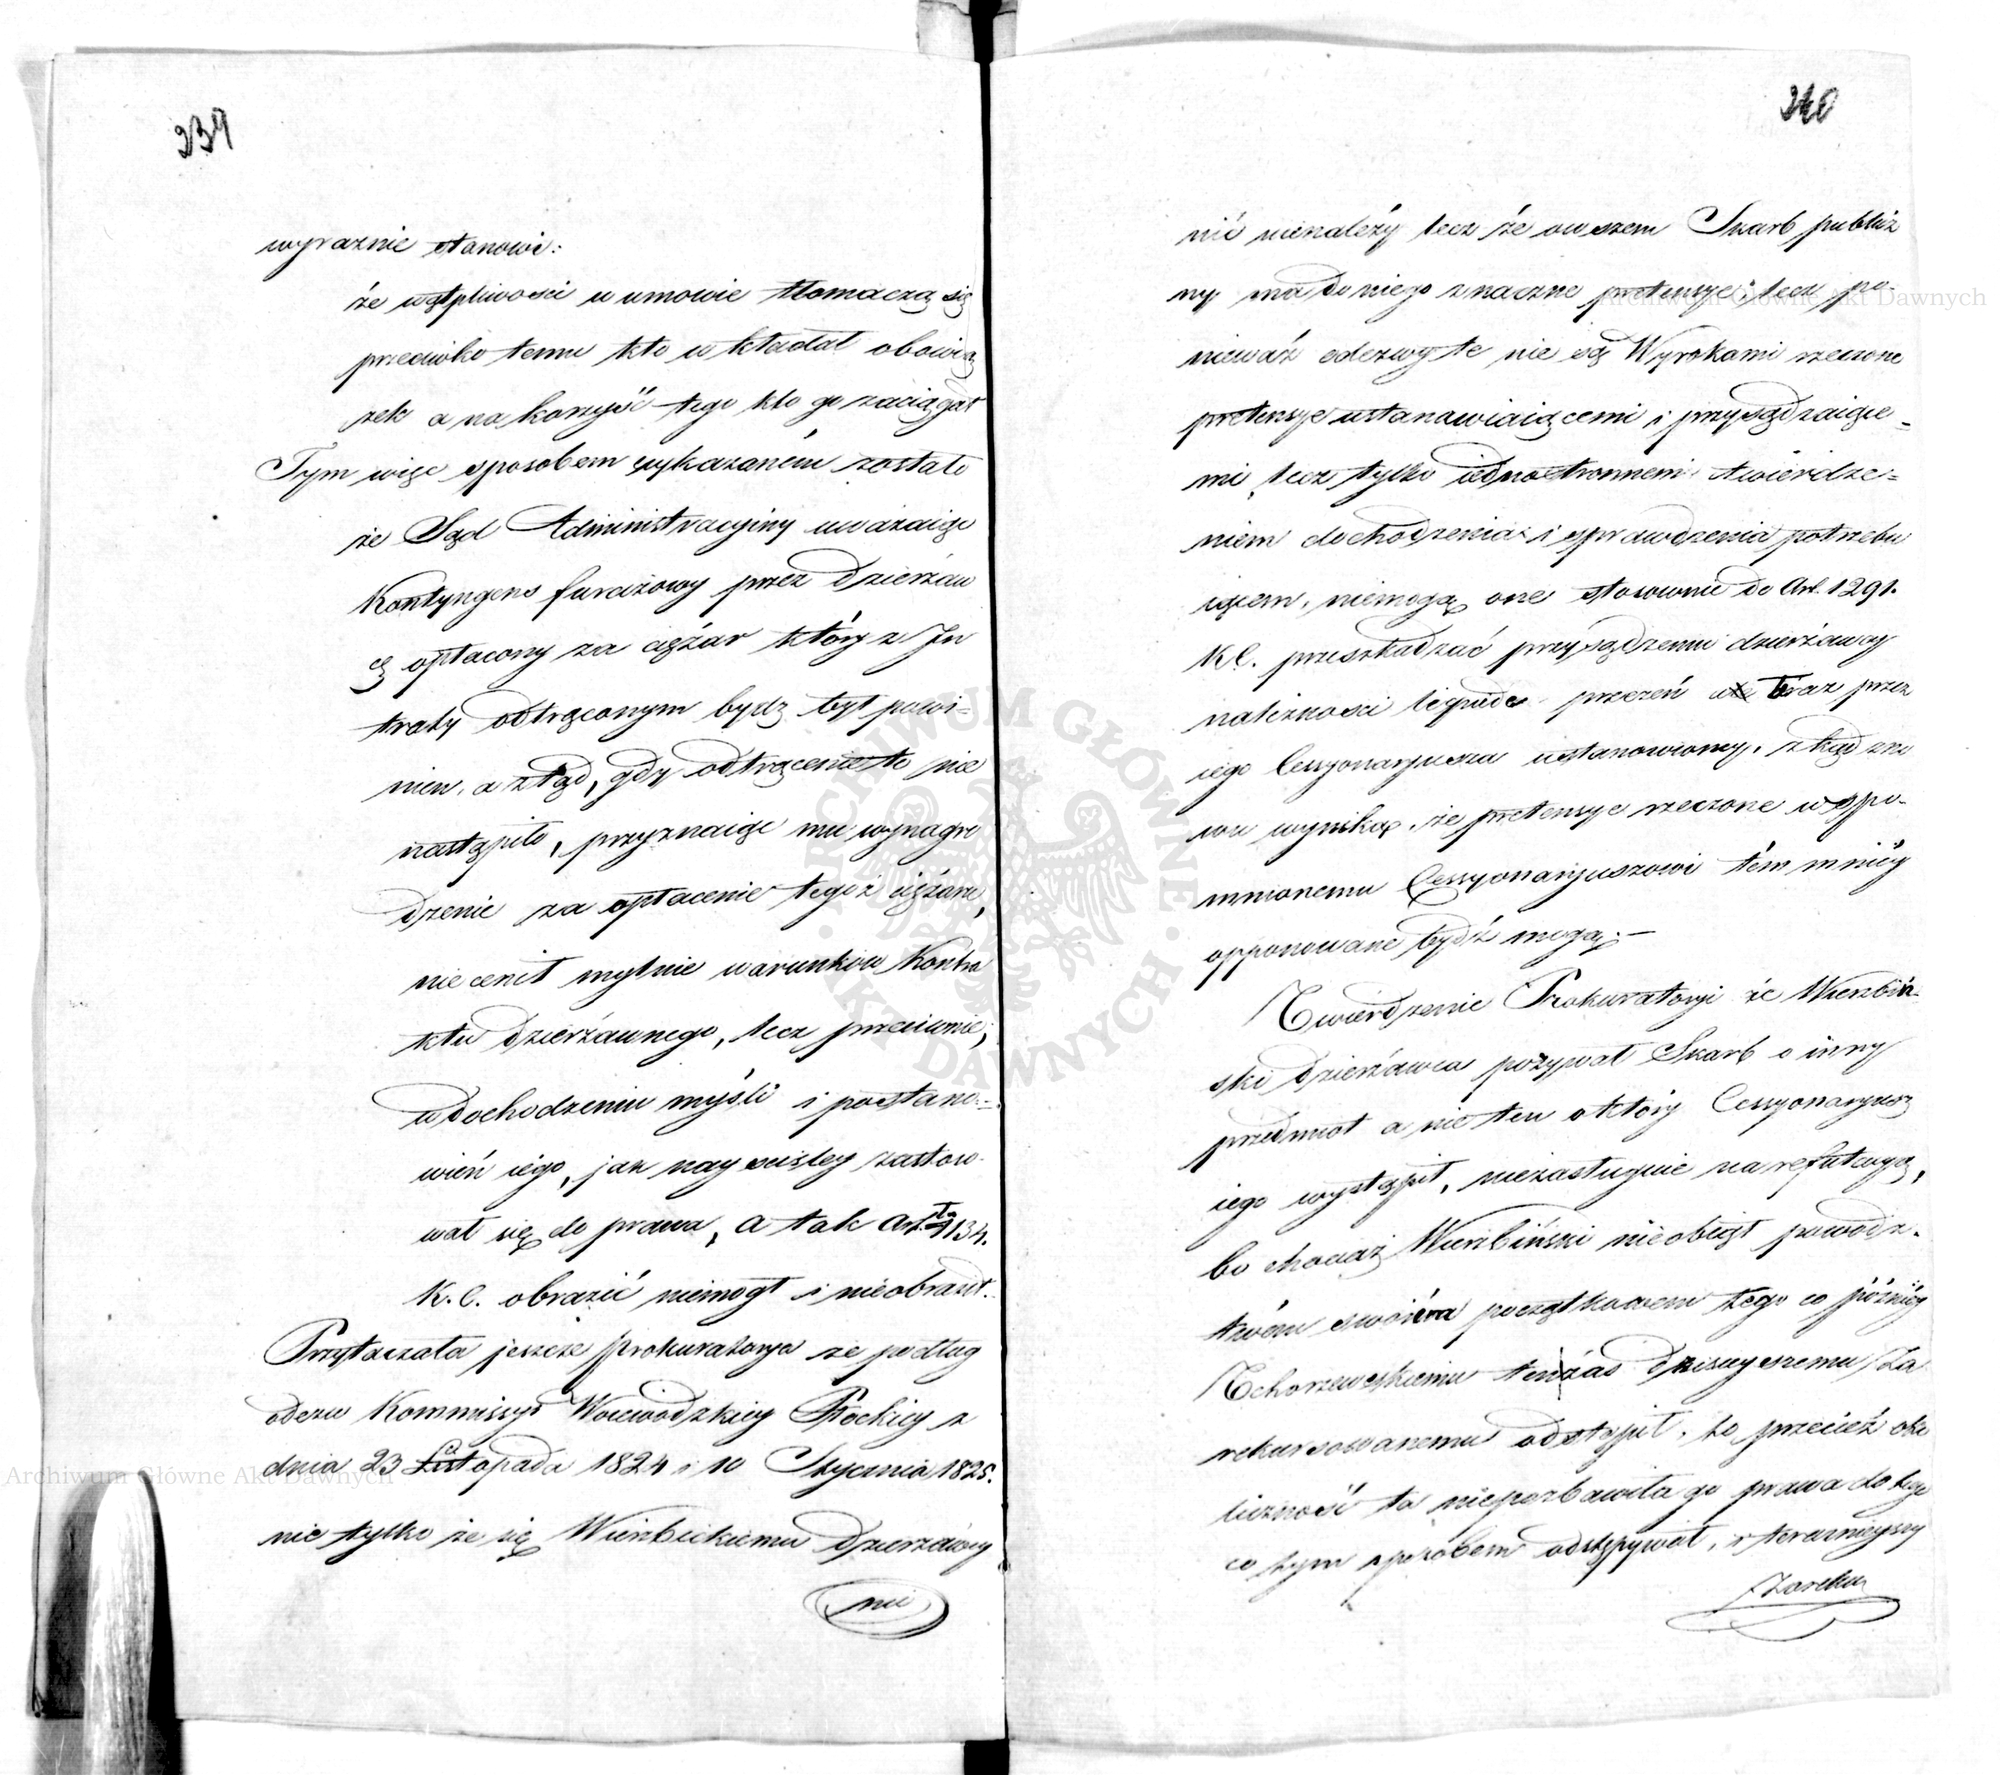 239
wyraznie stanowi:
że wątpliwości w umowie tłomaczą się
przeciwko temu kto wkładał obowią
zek a na korzyść tego kto go zaciągał
Tym więc sposobem wykazaném zostało
że Sąd Administracyiny uważaiąc
Kontyngens furażowy przez Dzierżaw
cę opłacony za ciężar który z In
traty odtrąconym bydz był powi-
nien, a ztąd, gdy odtrącenie to nie
nastąpiło, przyznaiąc mu wynagro
dzenie za opłacenie tegoż ciężaru,
nie cenił mylnie warunków Kontra
ktu Dzierżawnego, lecz przeciwnie,
w dochodzeniu myśli i postano-
wień iego, jak nayściśley zastoso-
wał się do prawa, a tak Art. 1134.
K.C. obrazić niemógł i nieobraził.
Przytaczała jeszcze Prokuratorya że podług
odezw Kommissyi Woiewodzkiey Płockiey z
dnia 23 Listopada 1824 i 10 Stycznia 1825.
nie tylko że się Wierzbickiemu Dzierżawcy
nic
240
nić nienależy lecz że owszem Skarb publicz
ny ma do niego znaczne pretensye; lecz po-
nieważ odezwy te nie są Wyrokami rzeczone
pretensye ustanawiaiącemi i przysądzaiące-
mi, lecz tylko iednostronnem twierdze-
niem dochodzenia i sprawdzenia potrzebu
iącem, niemogą one stosownie do Art. 1291.
K.C. przeszkadzać przysądzeniu dzierżawcy
należności liquide przezeń oraz przez
iego Cessyonaryusza ustanowioney, zkąd zno
wu wynika, że pretensye rzeczone wspo-
mnionemu Cessyonaryuszowi tém mniéy
opponowane bydź mogą. —
Twierdzenie Prokuratoryi że Wierzbiń
ski Dzierżawca pozywał Skarb o inny
przedmiot a nie ten o który Cessyonaryusz
iego wystąpił, niezasługuie na refutacyą,
bo chociaż Wierzbiński nieobiął powódz-
twem swoiem początkowem tego co późniéy
Tchorzewskiemu zaś dzisieyszemu Za
rekursowanemu odstąpił, to przecież oko
liczność ta niepozbawiła go prawa do tego
co tym sposobem odstępywał, i teraznieyszy
Zareku
Archiwum Główne Akt Dawnych
Archiwum Główne Akt Dawnych
ARCHIWUM GŁÓWNE · AKT DAWNYCH ·